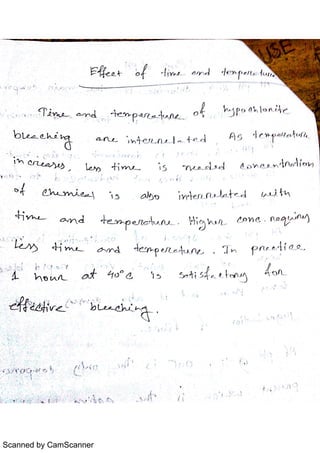 USE
Effect of time and temperature
Time and temperature of hypochlorite
bleaching are interrelated. As temperature
increases, less time is needed concentration
of chemical is also interrelated with
time and temperature. Higher conc. requiring
less time and temperature. In practice
1 hour at 40°C is satisfactory for
effective bleaching.
Scanned by CamScanner